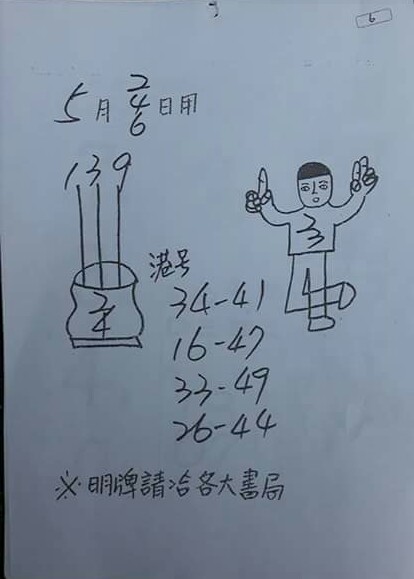 6
5月2 4 6日用
139
2
4
3
港号
34-41
16-47
33-49
26-44
※明牌請洽各大書局